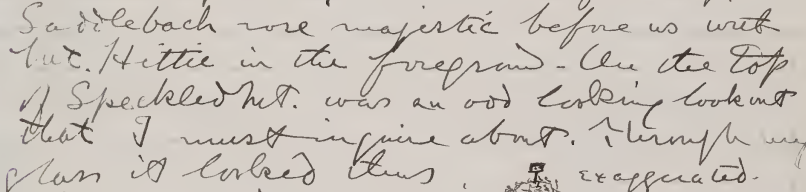 Saddleback rose majestic before us with
Mt. Hittie in the foregroud - On the top
of Speckled Mt. was an odd looking lookout
that I must inquire about. Through my
glass it looked thus, exaggerated.